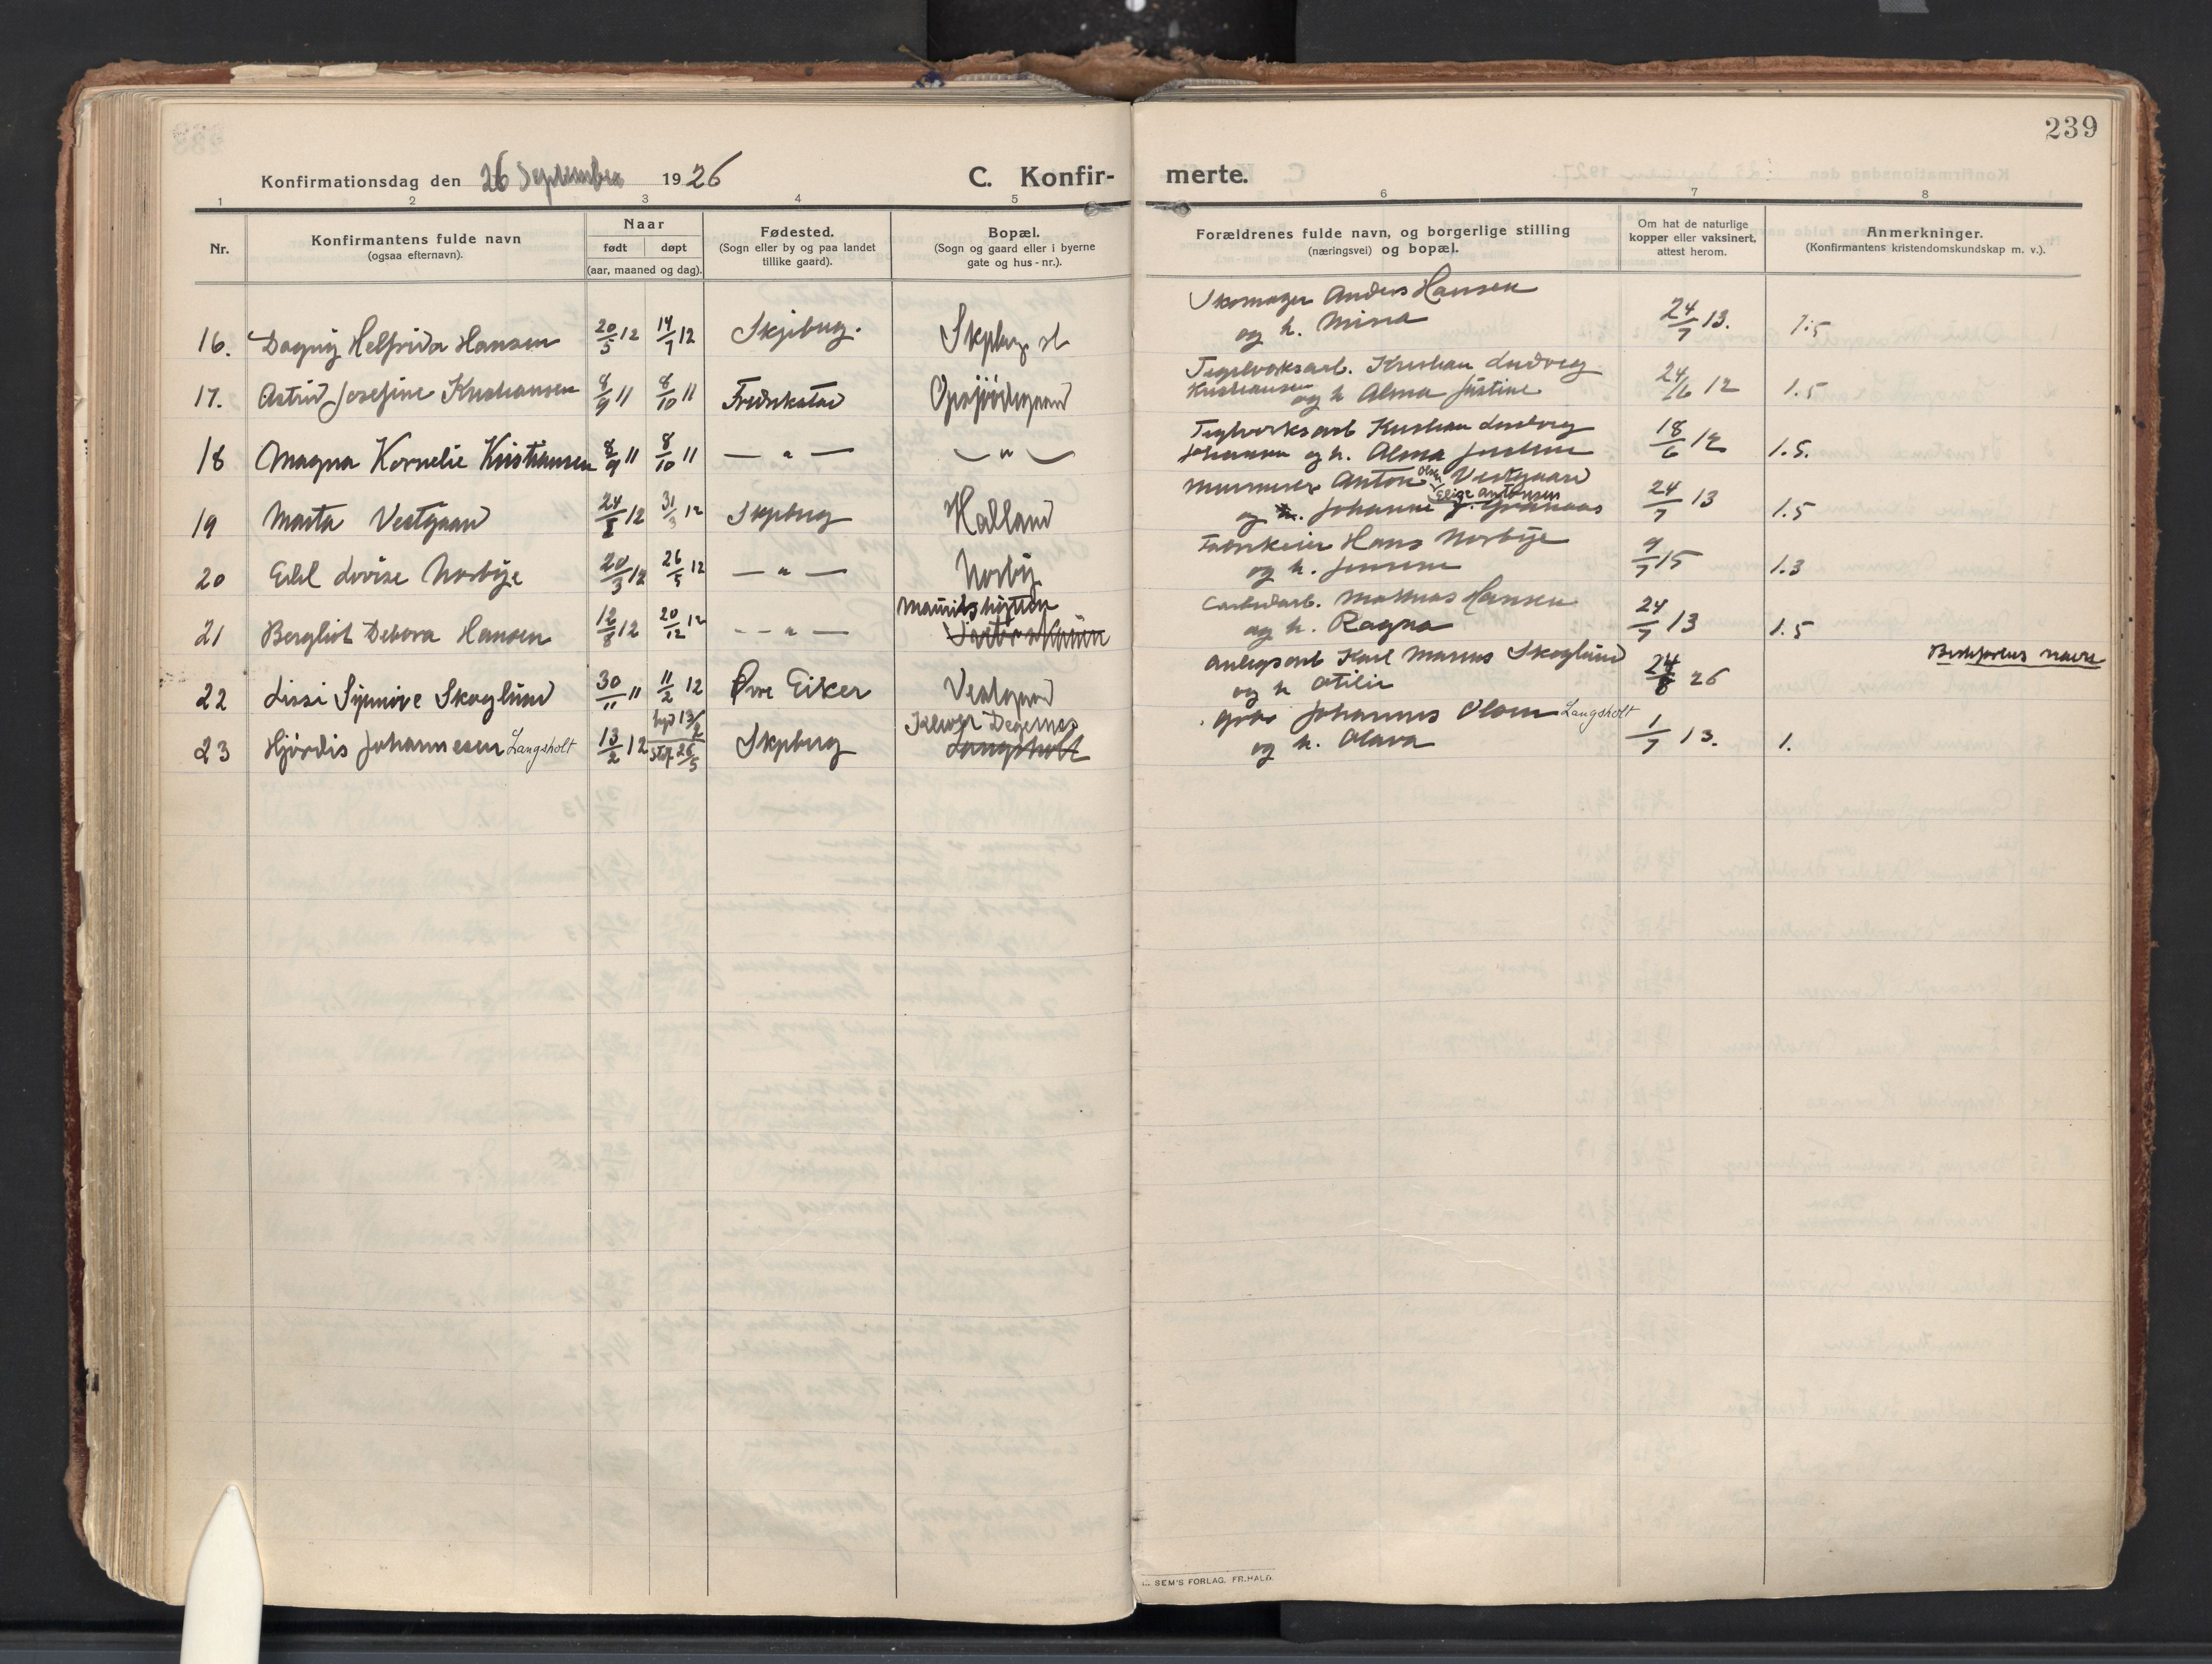 239
Konfirmationsdag den 26 September 1926 C. Konfir- merte.
1 2 3 4 5 6 7 8
Nr. Konfirmantens fulde navn (ogsaa efternavn). Naar født døpt (aar, maaned og dag). Fødested. (Sogn eller by og paa landet tillike gaard). Bopæl. (Sogn og gaard eller i byerne gate og hus-nr.). Forældrenes fulde navn, og borgerlige stilling (næringsvei) og bopæl. Om hat de naturlige kopper eller vaksinert, attest herom. Anmerkninger. (Konfirmantens kristendomskundskap m. v.).
Skomager Anders Hansen
16. Dagny Helfrida Hansen 20/5 12 14/7 12 Skjeberg. Skjeberg st og h. Mina 24/7 13. 1.5
Teglverksarb. Kristian Ludvig
17. Astrid Josefine Kristiansen 8/9 11 8/10 11 Fredrikstad Kristiansen og h Alma Justine 24/6 12 1.5
Teglverksarb Kristian Ludvig
18 Magna Kornelie Kristiansen 8/9 11 8/10 11 — " — — " — Johansen og h. Alma Justine 18/6 12 1.5.
Murmester Anton Olsen Vestgaard
19 Marta Vestgaard 24/1 12 31/3 12 Skjeberg Halland og h. Johanne Elise Antonsen 24/7 13 1.5
Fabrikeier Hans Norbye
20 Edel Lovise Norbye 20/3 12 26/5 12 — " — Norby og h. Jensine 9/7 15 1.3
Mauritshytten Carbidarb. Mathias Hansen
21 Bergliot Debora Hansen 12/8 12 20/12 12 — " — og h. Ragna 24/7 13 1.5
Anlegsarb Karl Marius Skoglund Bestefarens navn
22 Lissi Synnøve Skoglund 30/11 11 11/2 12 Øvre Eiker Vestgard og h Otilie 24/8 26
hjd 13/2 Klever Degernes Grbr Johannes Olsen Langsholt
23 Hjördis Johannesen Langsholt 13/2 12 stf 26/5 Skjeberg Langsholt og h. Olava 1/7 13. 1.
SEM'S FORLAG. FR.HALD.